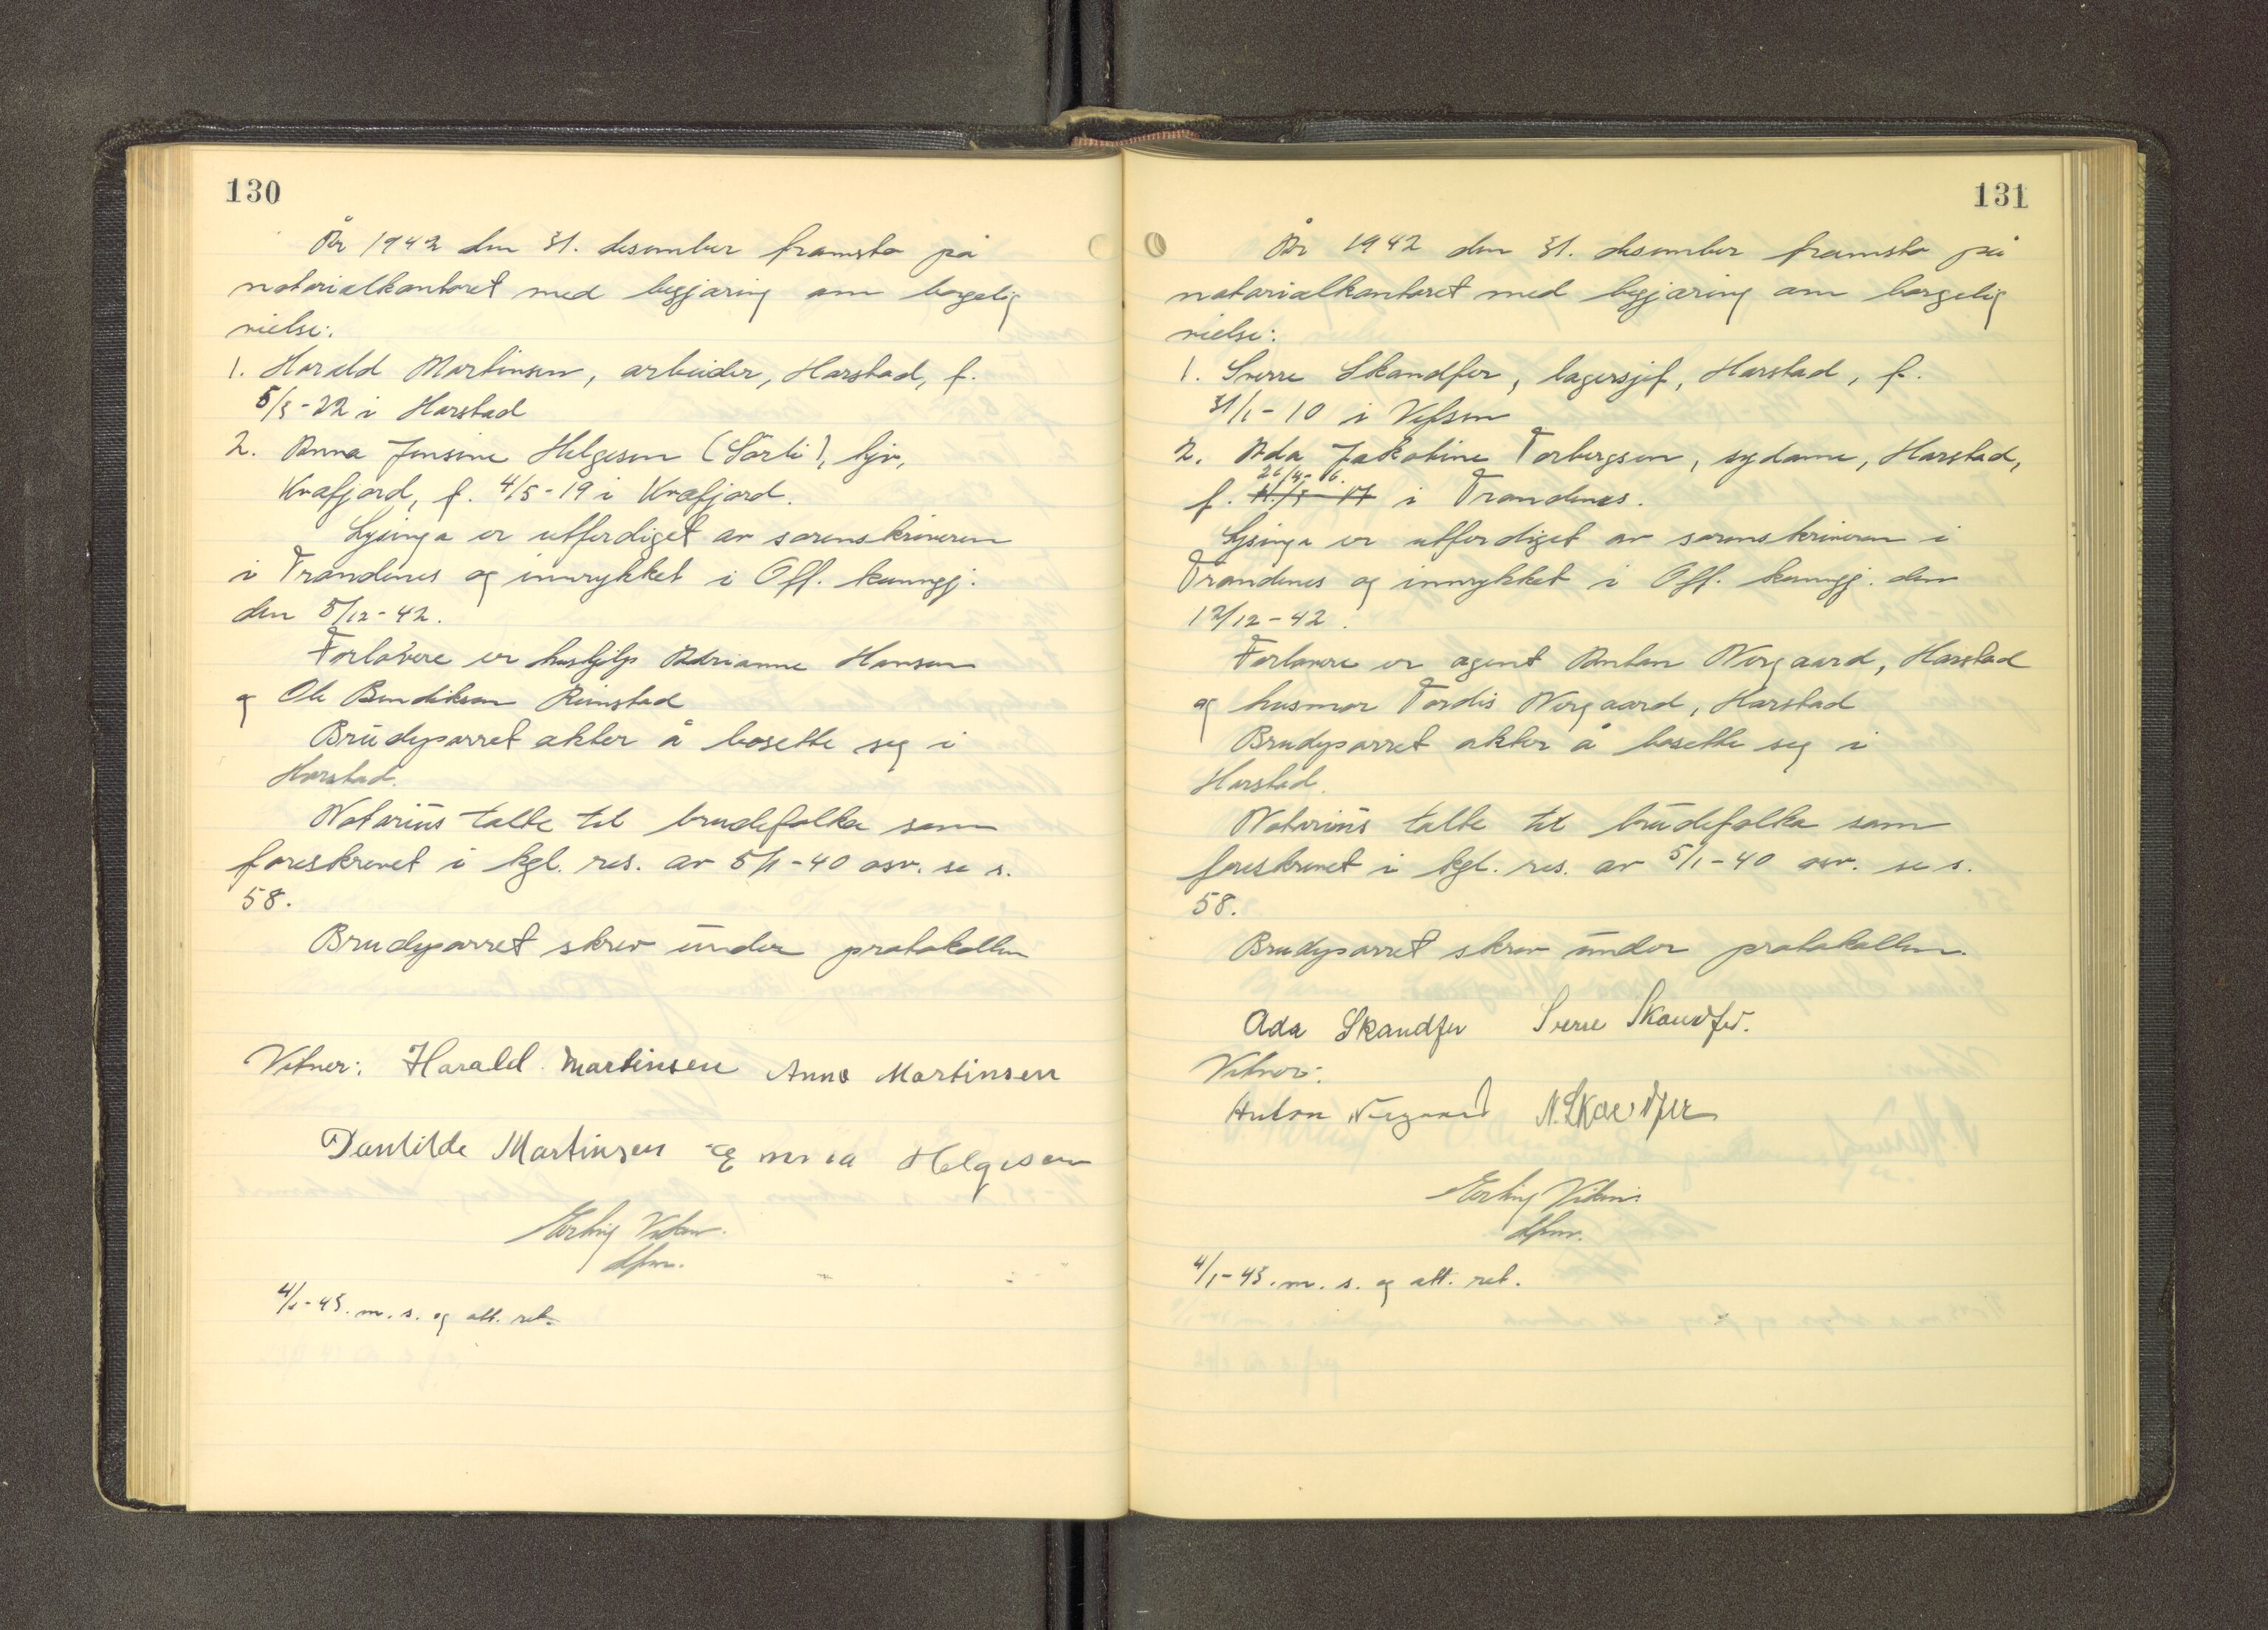 130
År 1942 den 31. desember framsto på
notarialkontoret med begjæring om borgelig
vielse:
1. Harald Martinsen, arbeider, Harstad, f.
5/3-22 i Harstad
2. Anna Jensine Helgesen (Sørli), hjv,
Kvæfjord, f. 4/5-19 i Kvæfjord.
Lysinga er utferdiget av sorenskriveren
i Trondenes og innrykket i Off. kunngj.
den 5/12-42.
Forlovere er hushjelp Adrianne Hansen
og Ole Bendiksen Rinnstad
Brudeparret akter å bosette seg i
Harstad.
Notarius talte til brudefolka som
foreskrevet i kgl. res. av 5/1-40 osv. se s.
58.
Brudeparret skrev under protokollen
Vitner: Harald Martinsen Anna Martinsen
Dantilde Martinsen Emma Helgesen
Erling Viken
dfm.
4/1-43. m. s. og att. ret.
131
År 1942 den 31. desember framsto på
notarialkontoret med begjæring om borgelig
vielse:
1. Sverre Skandfer, lagersjef, Harstad, f.
31/1-10 i Vefsen
2. Ada Jakobine Torbergsen, sydame, Harstad,
26/4-16.
f. 11./5-17 i Trondenes.
Lysinga er utferdiget av sorenskriveren i
Trondenes og innrykket i Off. kunngj. den
12/12-42.
Forlovere er agent Anton Norgaard, Harstad
og husmor Tordis Norgaard, Harstad
Brudeparret akter å bosette seg i
Harstad.
Notarius talte til brudefolka som
foreskrevet i kgl. res. av 5/1-40 osv. se s.
58.
Brudeparret skrev under protokollen.
Ada Skandfer Sverre Skandfer.
Vitner:
Anton Norgaard N. Skandfer
Erling Viken
dfm.
4/1-43. m. s. og att. ret.